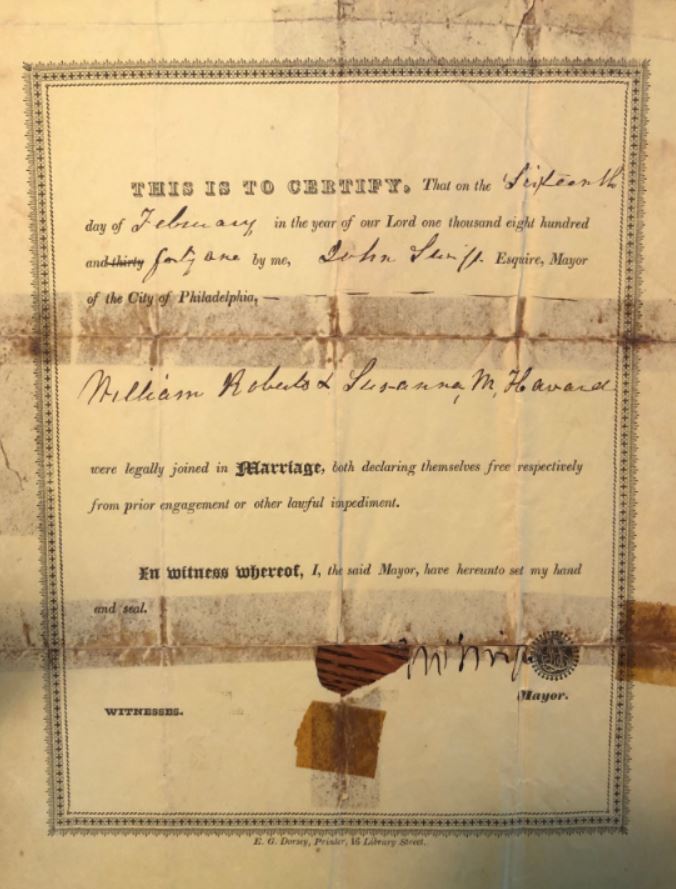 THIS IS TO CERTIFY, That on the Sixteenth
day of February in the year of our Lord one thousand eight hundred
and thirty forty one by me, John Swift Esquire, Mayor
of the City of Philadelphia,
William Roberts & Susanna, M, Havard
were legally joined in Marriage, both declaring themselves free respectively
from prior engagement or other lawful impediment.
In witness whereof, I, the said Mayor, have hereunto set my hand
and seal.
Mayor.
WITNESSES.
E. G. Dorsey, Printer, 16 Library Street.